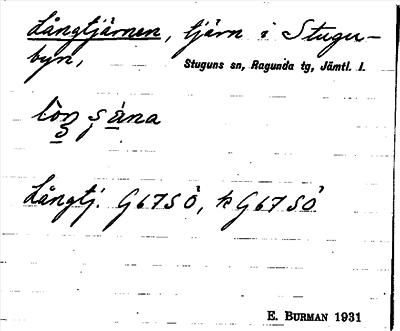 Långtjärnen, tjärn i Stugu-
byn,
Stuguns sn, Ragunda tg, Jämtl. l.
Långtj. G67SÖ, k G67SÖ
E. BURMAN 1931